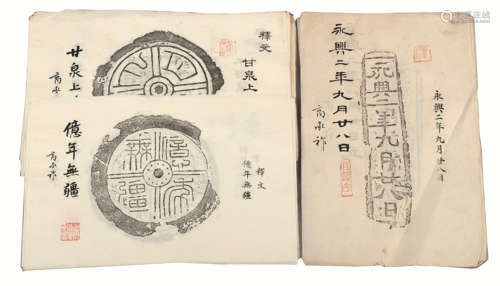 永興二年九月廿八日
商承祚
永興二年九月廿八日
永興二年九月廿八日
釋文
甘泉上
甘泉上
商承
釋文
億年無疆
億年無疆
億年無疆
商承祚